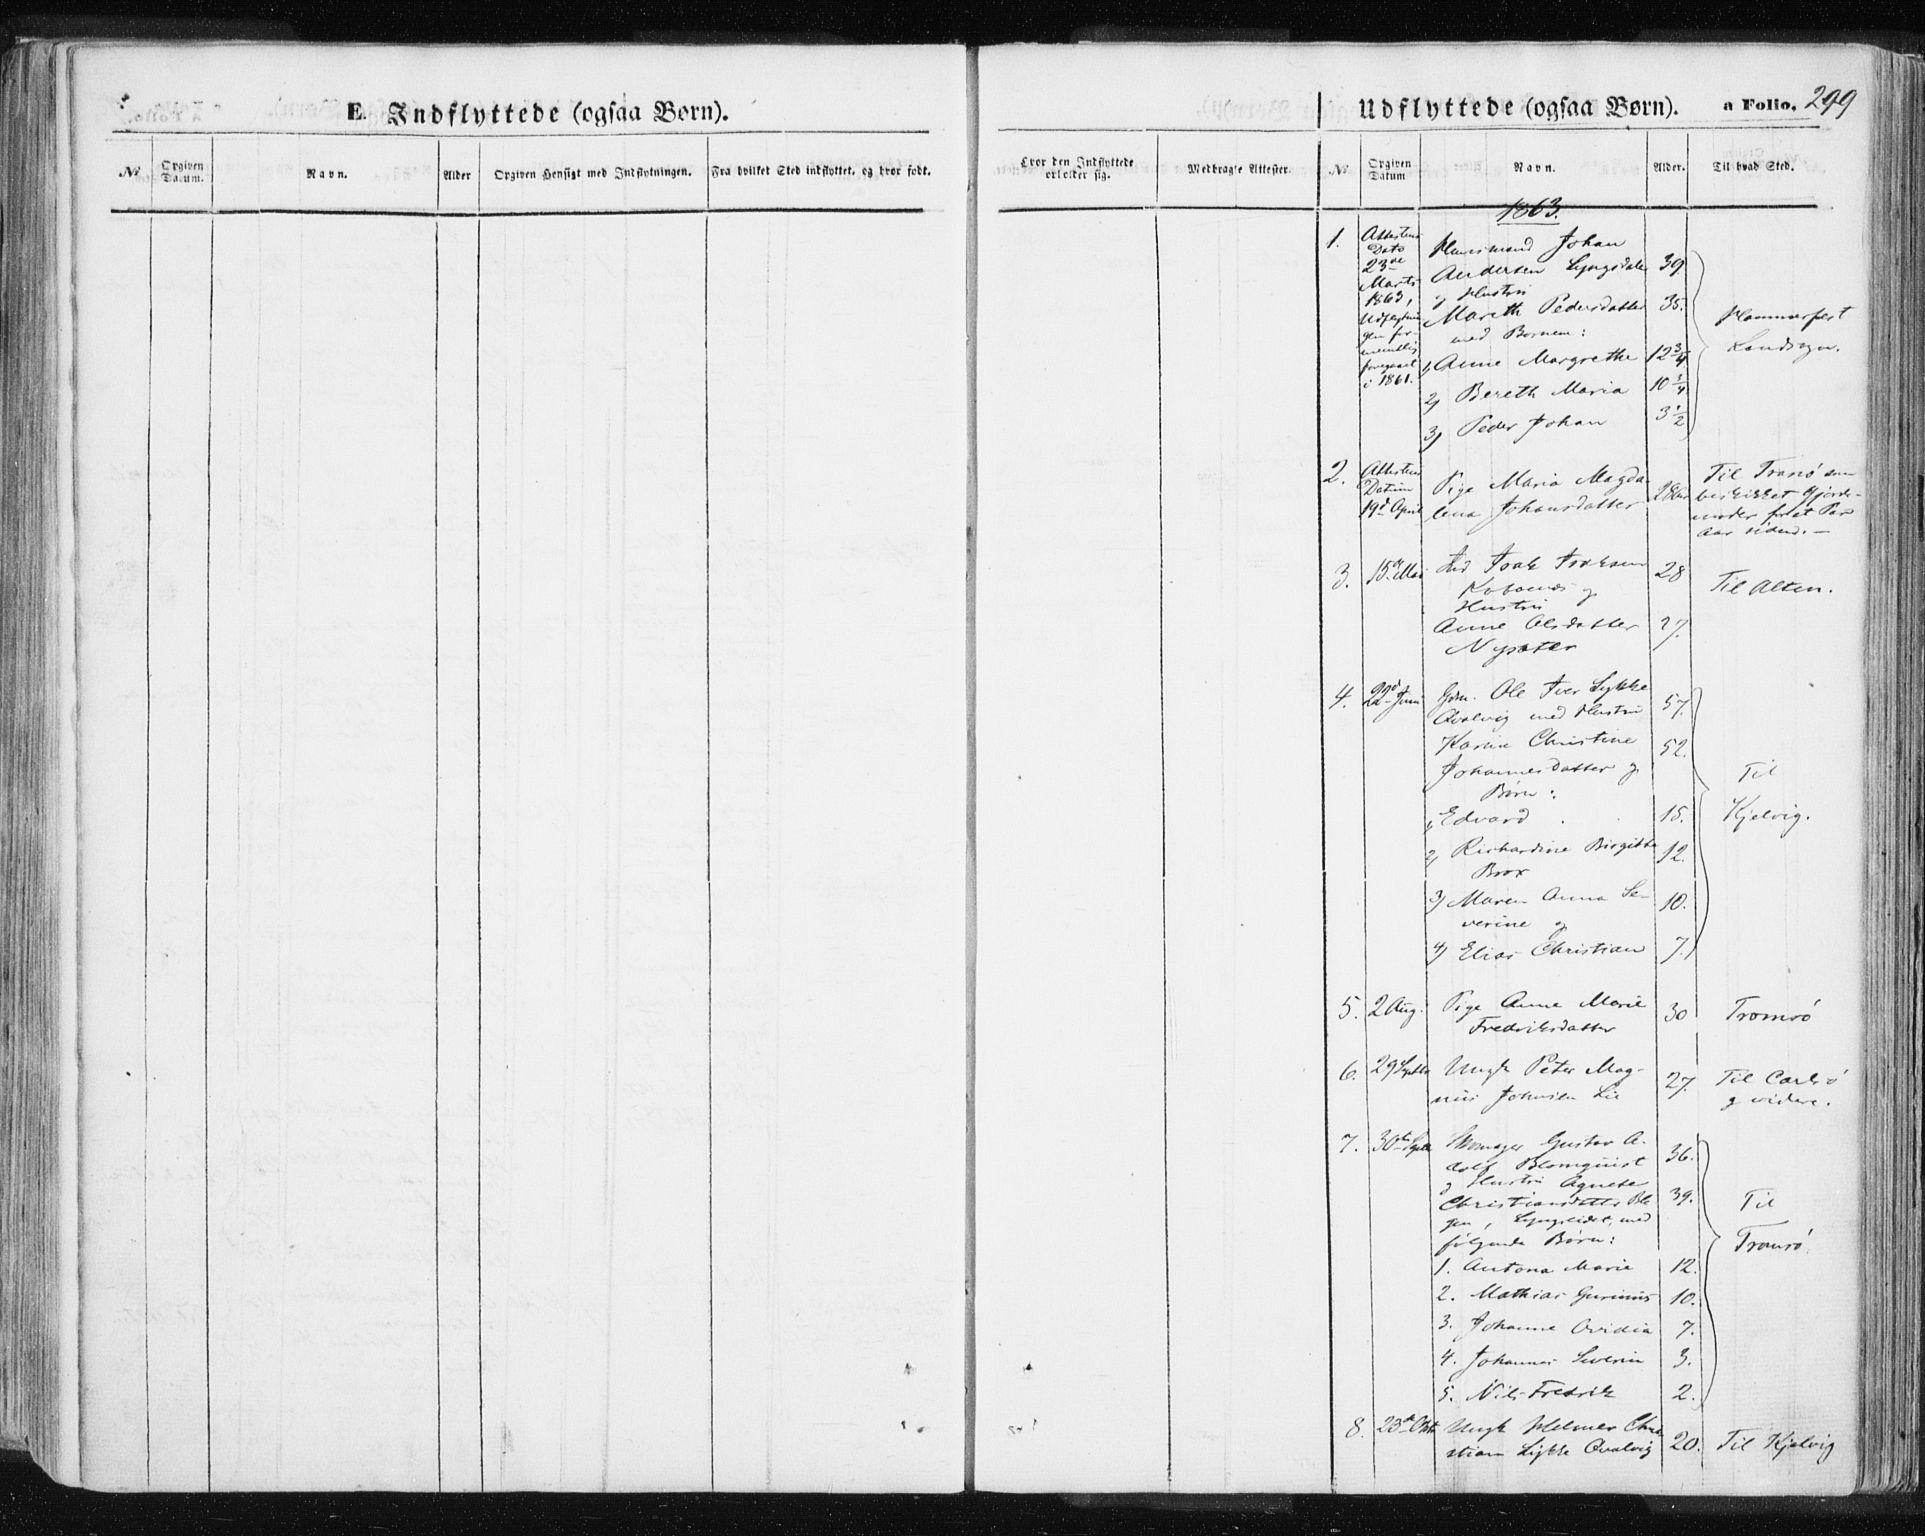 E. Indflyttede (ogsaa Børn).
Udflyttede (ogsaa Børn). a Folio. 299
No. Opgiven Datum. Navn. Alder Opgiven Hensigt med Indflytningen. Fra hvilket Sted indflyttet, og hvor født.
Hvor den Indflyttede opholder sig. Medbragte Attester. No. Opgiven Datum Navn. Alder. Til hvad Sted.
1863.
1. Attestens Dato 23de Marts 1863, Udflytningen formentlig foregaaet i 1861.
Huusmand Johan
Andersen Lyngsdale 39
og Hustru
Mareth Pedersdatter 35.
med Børnene:
1) Anne Margrethe 12 3/4
2) Bereth Maria 10 3/4
3) Peder Johan 3 1/2
Hammerfest
Landsogn.
2. Attestens Datum 19de April
Pige Maria Magda-
lena Johansdatter 28
Til Tranø som
beskikket Gjorde-
moder for et Par
Aar siden. —
3. 15de Mai
Isak Isaksen 28 Til Alten.
og
Hustru
Anne Olsdatter 27.
4. 22de Juni
Gbm. Ole Iver Lykke 57.
Qvalvig med Hustru
Karine Christine 52.
Johannesdatter og
Børn:
1) Edvard 15.
2) Richardine Birgitte 12.
Brox
3) Maren Anna Se- 10.
verine og
4) Elias Christian 7.
Til
Kjelvig.
5. 2 Aug. Pige Anne Marie 30 Tromsø
Fredriksdatter
6. 29 Septbr Ungk Peter Mag- 27. Til Carlsø
nus Johnsen Lie og videre.
7. 30te Septbr
Skomager Gustav A- 36.
dolf Blomquist
og Hustru Agnete
Christiansdatter 39.
Lyngseidet, med
følgende Børn:
1. Antona Marie 12.
2. Mathias 10.
3. Johanne Ovidia 7.
4. Johannes Severin 3.
5. Nils Fredrik 2.
Til
Tromsø.
8. 23de Octbr Ungk Helmer Chri-
stian Lykke Qvalvig 20. Til Kjelvig